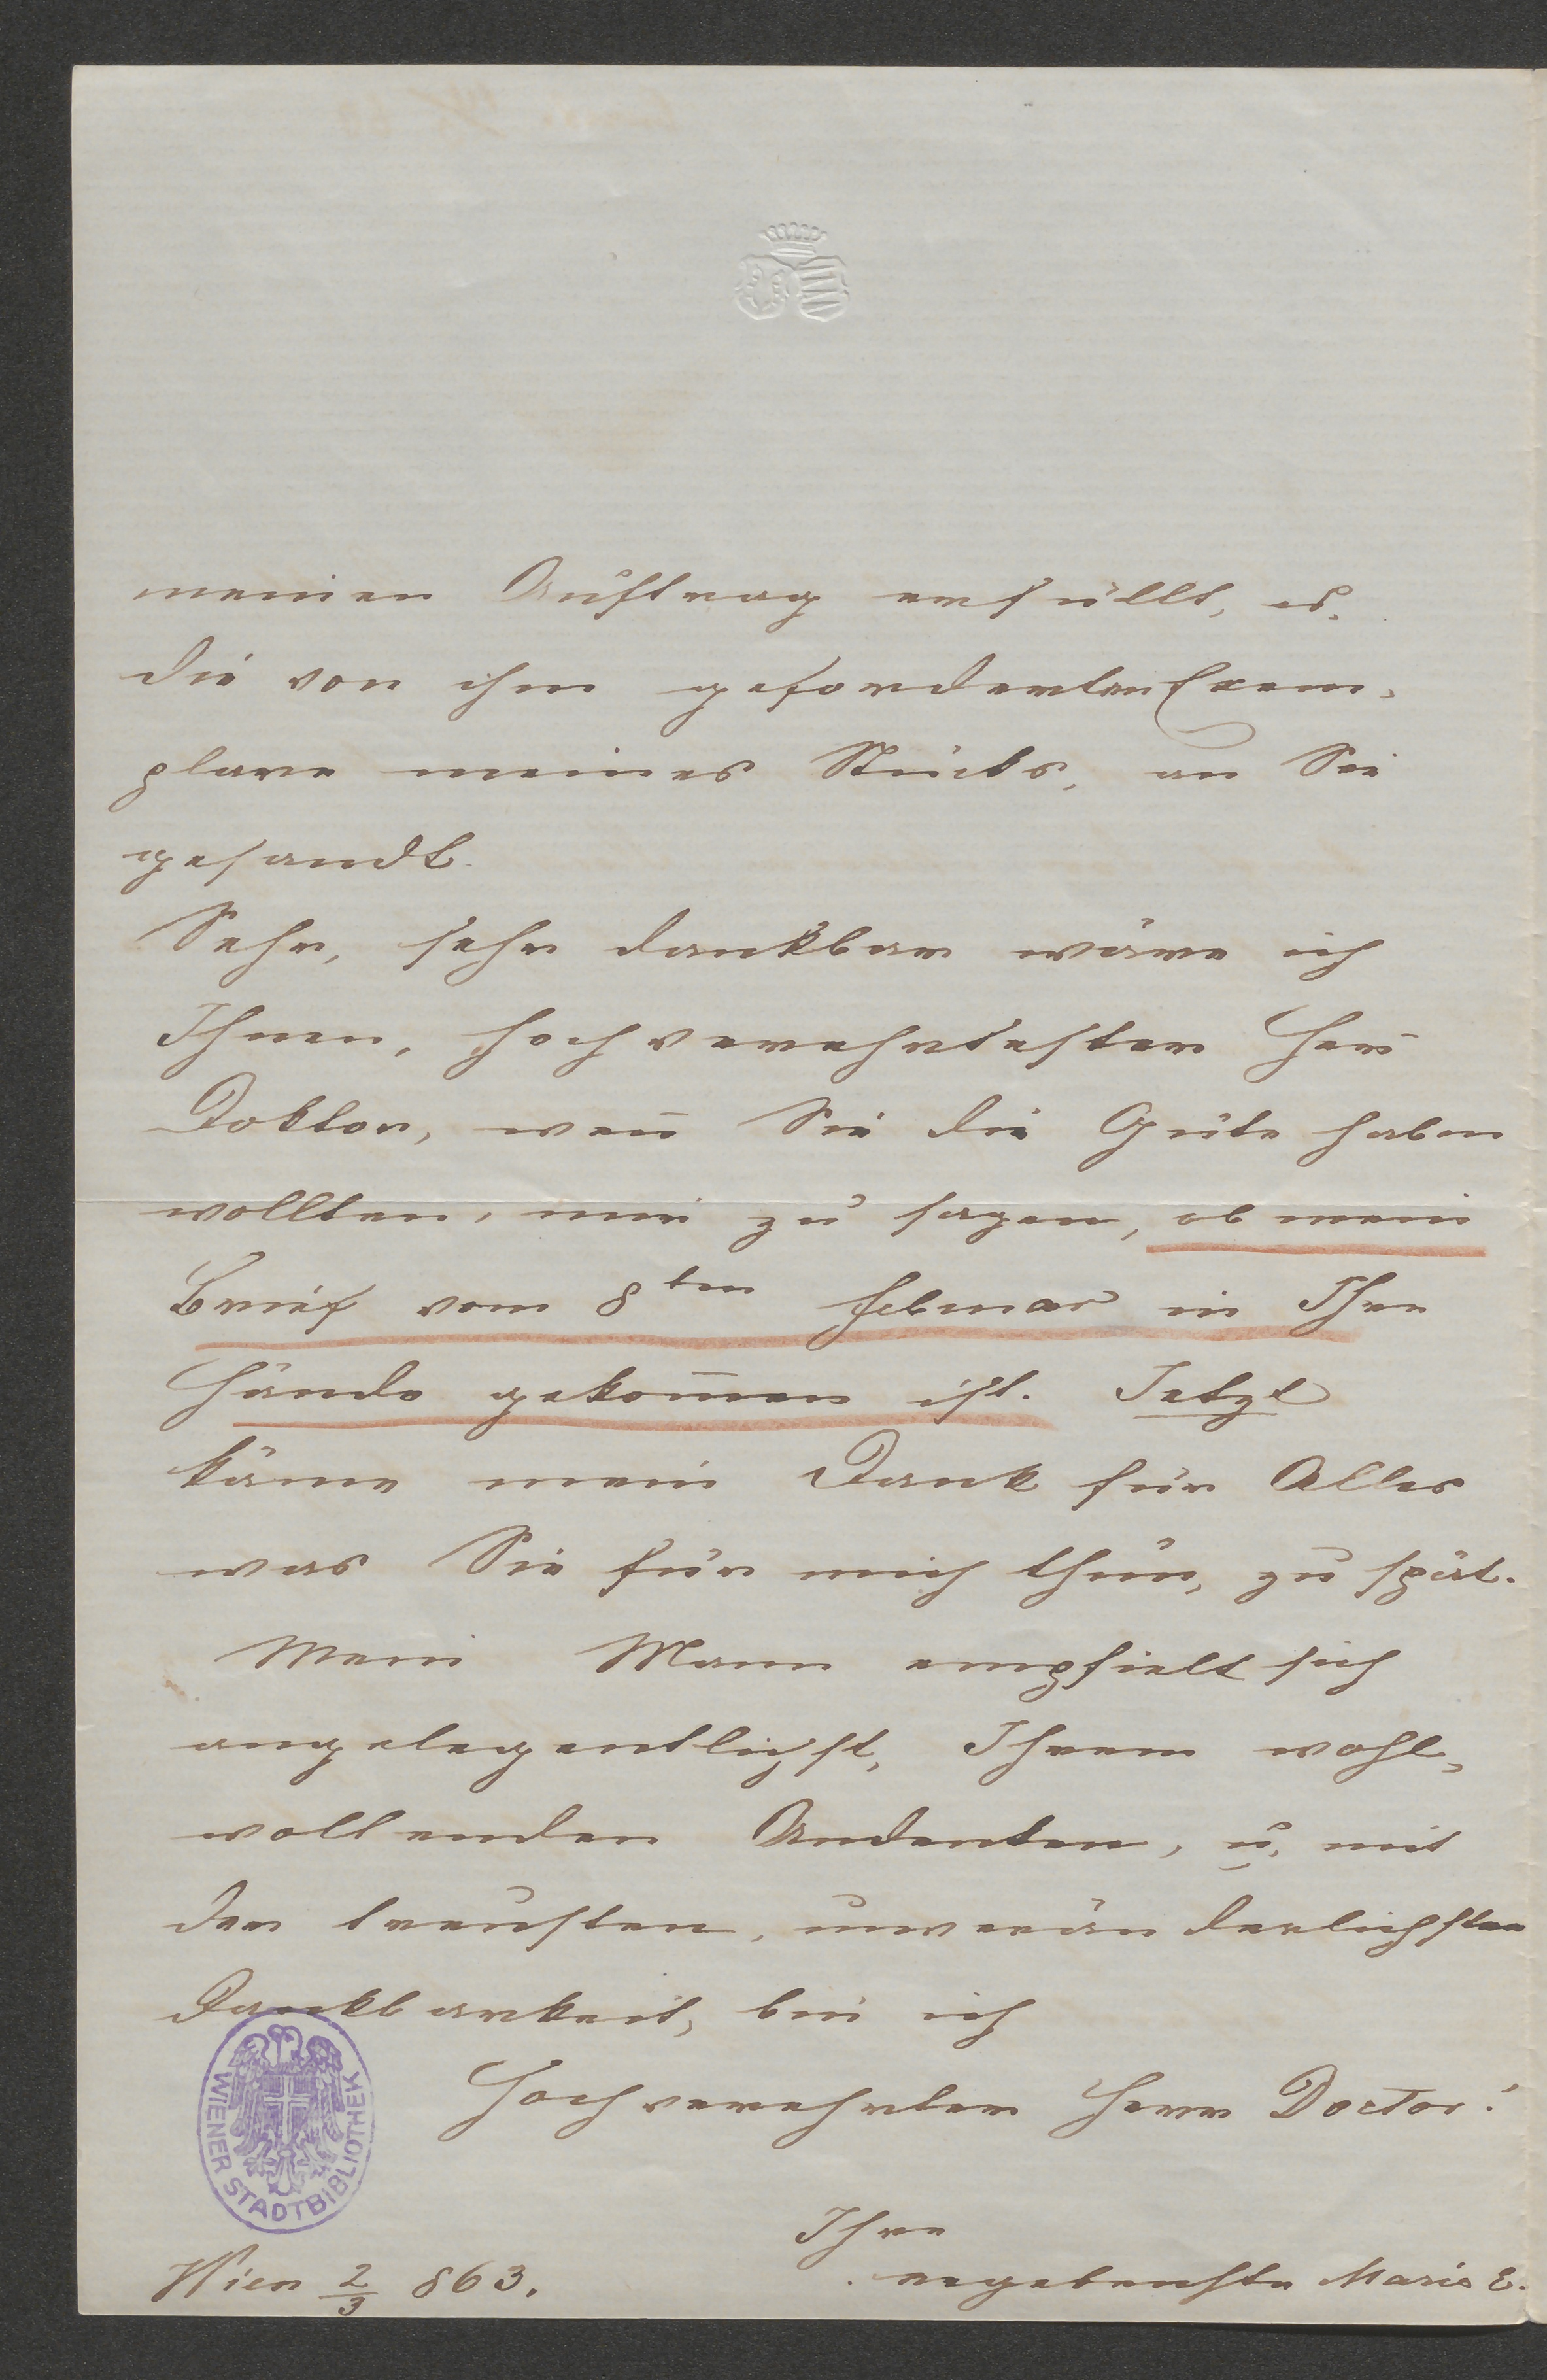 meinen Auftrag erfüllt, u.
die von ihm geforderten Exem-
plare meines Stücks, an Sie
gesandt.
Sehr, sehr dankbar wäre ich
Ihnen, hochverehrtester Herr̄
Doktor, wen̄ Sie die Güte haben
wollten, mir zu sagen, ob mein
Brief vom 8ten Februar in Ihre
Hände gekom̄en ist. Jetzt
käme mein Dank für Alles
was Sie für mich thun, zu spät.
Mein Mann empfielt sich
angelegentlichst, Ihrem wohl-
wollenden Andenken, u. mit
der treusten, unveränderlichsten
Dankbarkeit, bin ich
Hochverehrter Herr Doctor!
Ihre
ergebenste Marie E.
Wien 2/3 863.
WIENER STADTBIBLIOTHEK